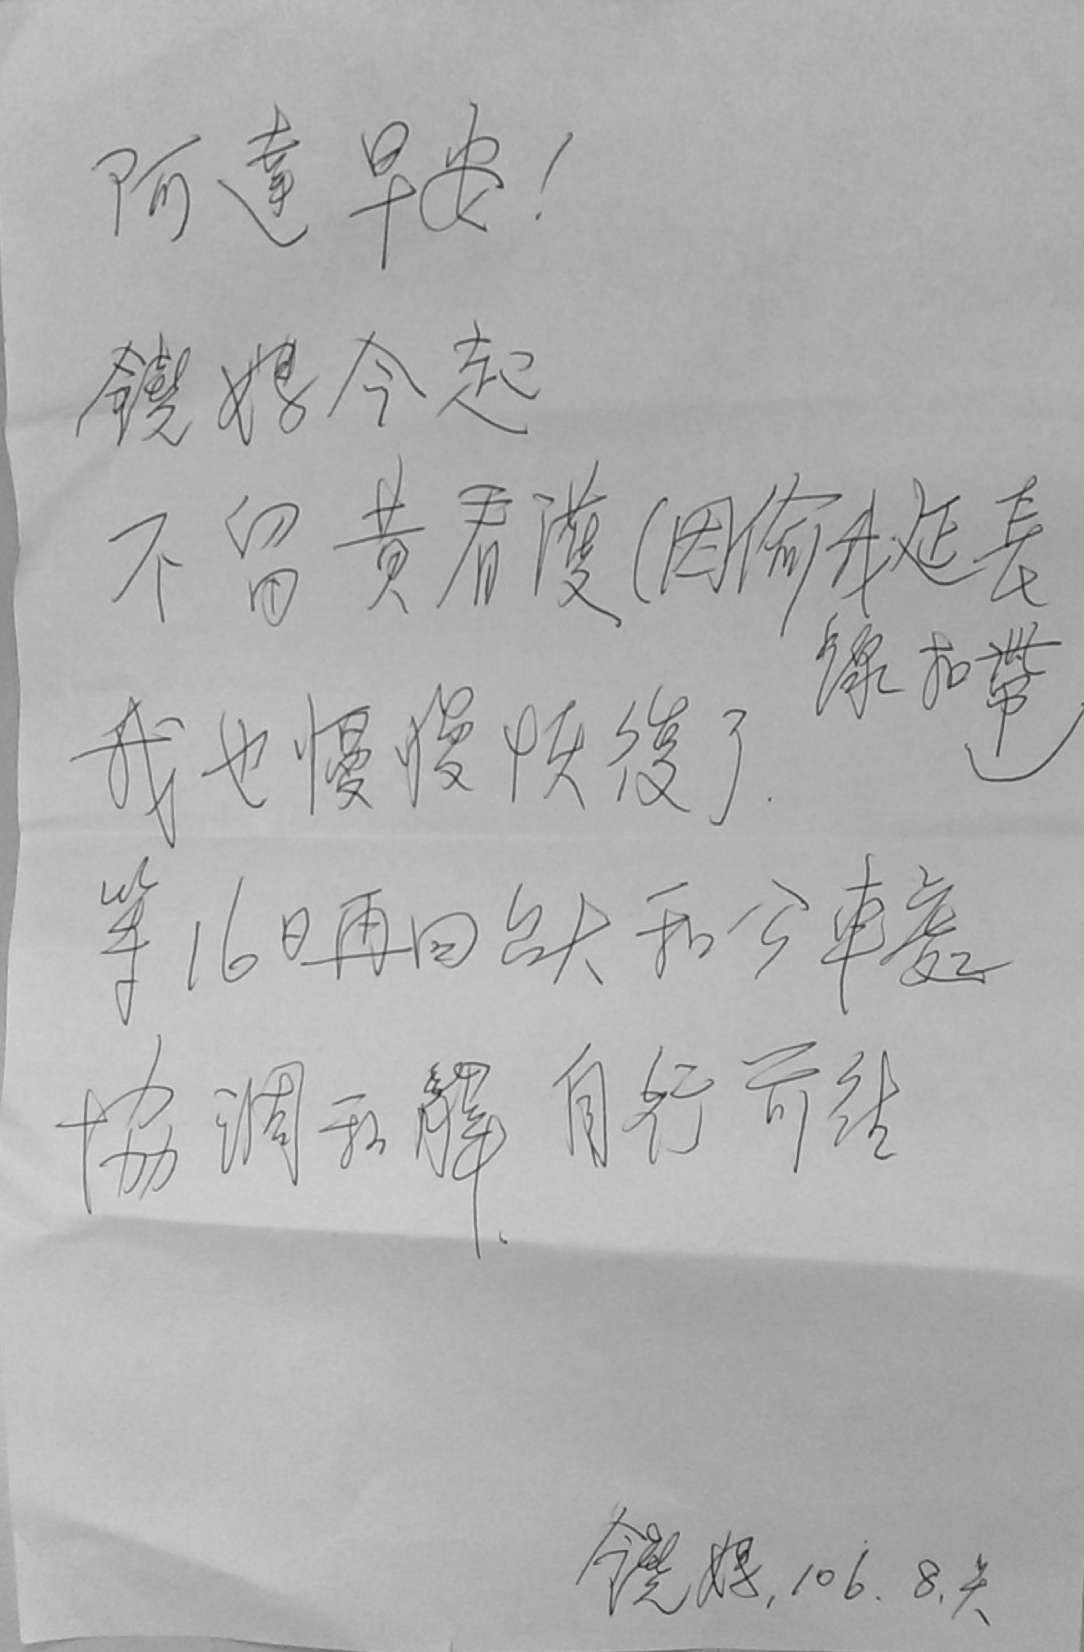 阿達早安!
饒媽今起
不留黃看護(因偷我延長
線和帶)
我也慢慢恢復了.
等16日再回台大和公車處
協調和解.自行前往
饒媽,106.8.